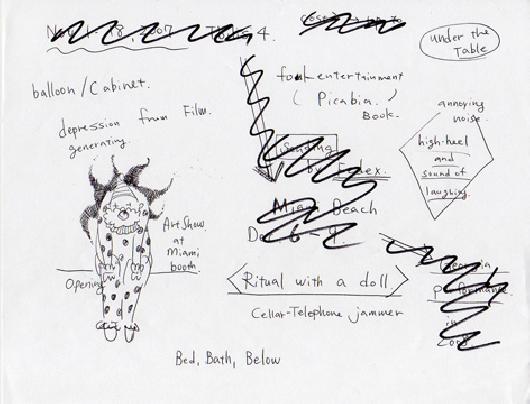 4.
under the
Table
balloon/Cabinet.
fork entertainment
(Picabia.)
Book.
depression from Film.
generating.
annoying
noise.
high-heel
and
sound of
laughing.
by Fedex.
Miami Beach
Art Show
at
Miami
booth.
opening
Ritual with a doll.
Cellar-Telephone jammer
Georgia
Performance
in
2008
Bed, Bath, Below